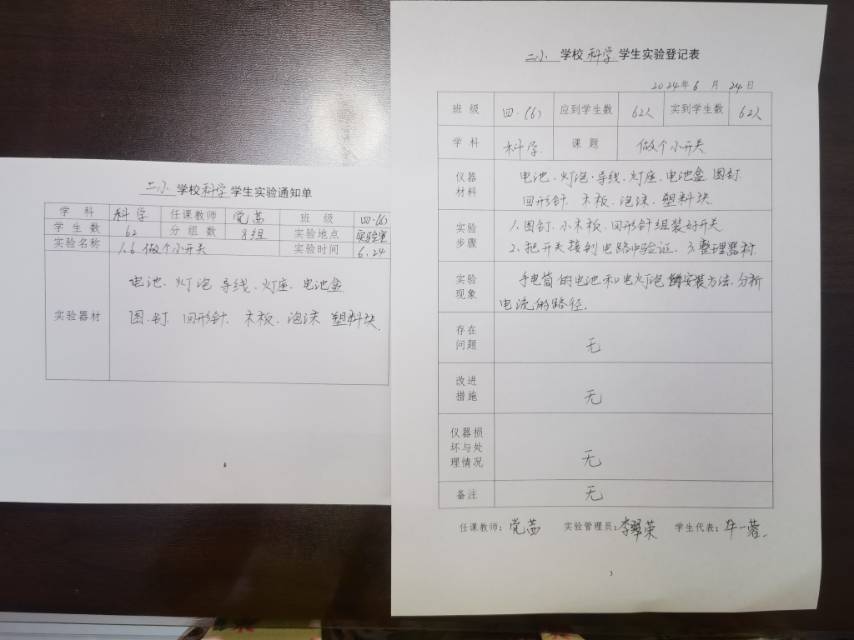 二小 学校科学学生实验通知单
学 科 科学 任课教师 党茜 班 级 四.(6)
学 生 数 62 分 组 数 8组 实验地点 实验室
实验名称 1.6 做个小开关 实验时间 6.24
电池、灯泡 导线、灯座、电池盒
实验器材 图钉 回形针、木板、泡沫 塑料块
二小 学校科学学生实验登记表
2024年6月24日
班 级 四.(6) 应到学生数 62人 实到学生数 62人
学 科 科学 课 题 做个小开关
仪器材料 电池、灯泡、导线、灯座、电池盒 图钉
回形针 木板、泡沫、塑料块
实验步骤 1.图钉、小木板、回形针组装好开关
2.把开关接到电路中验证、3.整理器材
实验现象 手电筒的电池和电灯泡的安装方法、分析
电流的路径.
存在问题 无
改进措施 无
仪器损坏与处理情况 无
备注 无
任课教师：党茜 实验管理员：李翠荣 学生代表：牛一蓉.